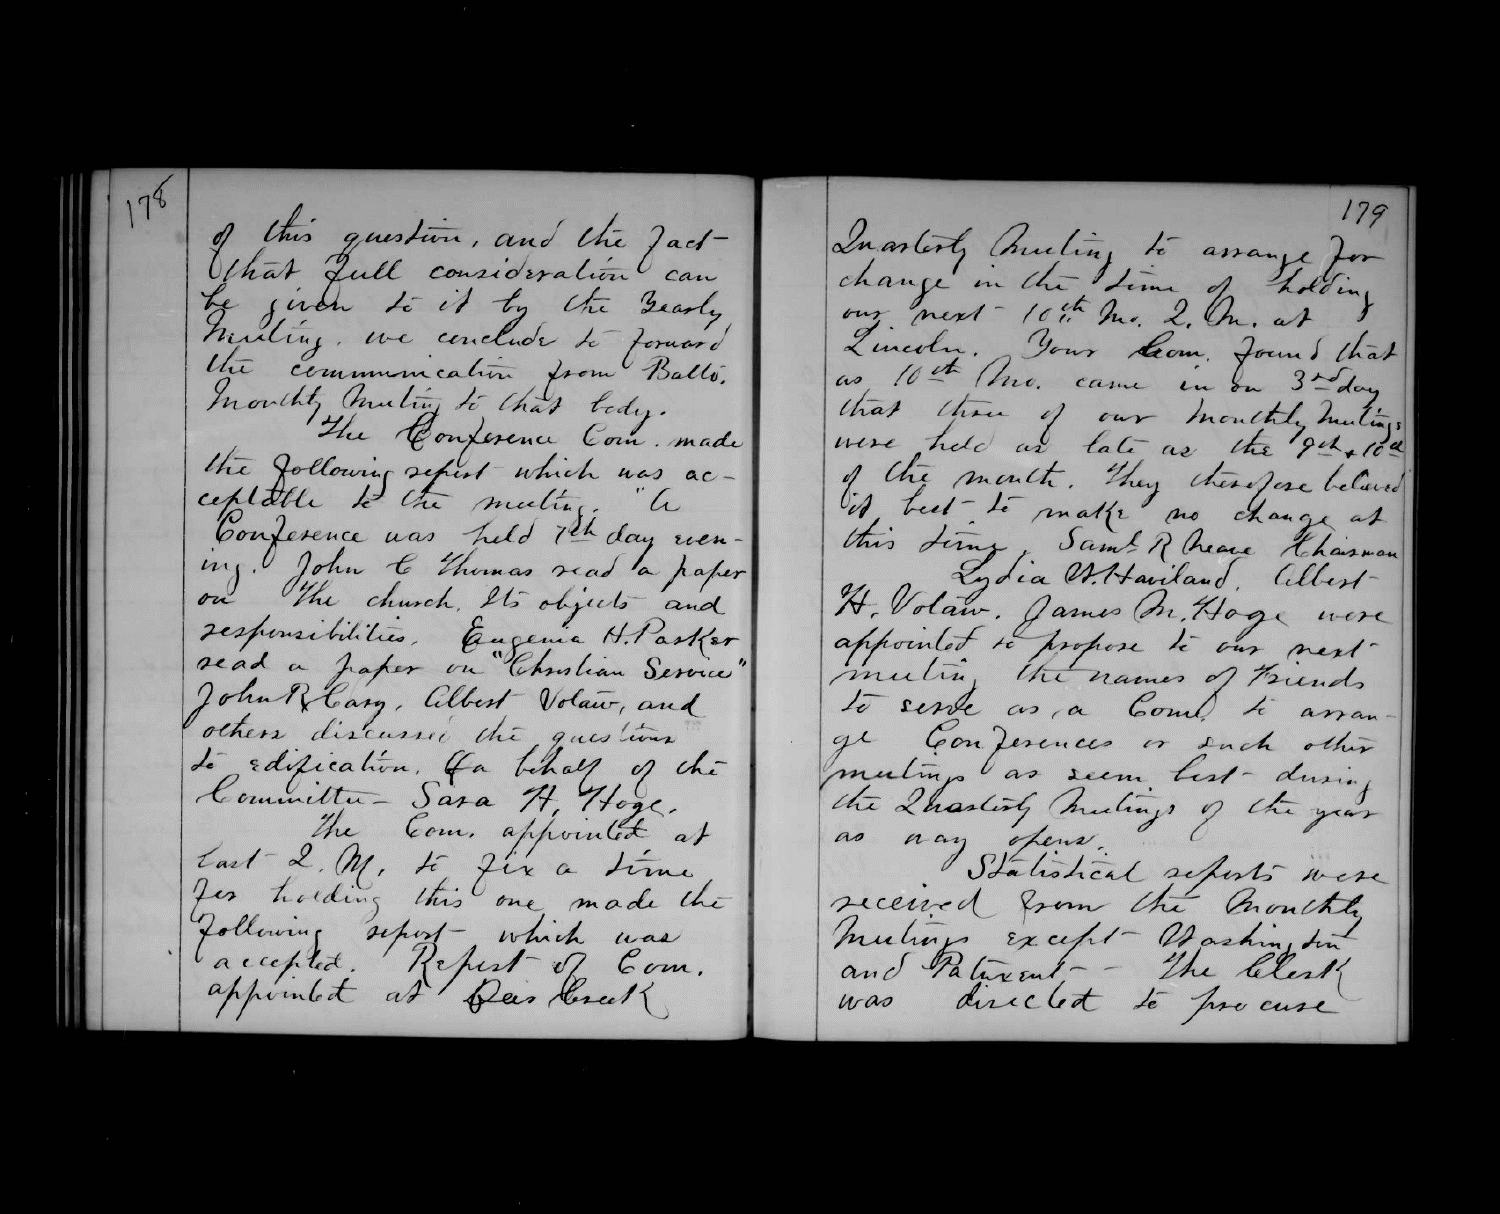 178
of this question, and the fact
that full consideration can
be given to it by the Yearly
Meeting. we conclude to forward
the communication from Balto.
Monthly Meeting to that body.
The Conference Com. made
the following report which was ac-
ceptable to the meeting. "A
Conference was held 7th day even-
ing. John C Thomas read a paper
on the church. Its objects and
responsibilities. Eugenia H. Parker
read a paper on "Christian Service"
John R Cary, Albert Votaw, and
others discussed the questions
to edification. On behalf of the
Committee- Sara H. Hoge.
The Com. appointed at
last Q. M. to fix a time
for holding this one made the
following report which was
accepted. Report of Com.
appointed at Deer Creek
179
Quarterly Meeting to arrange for
change in the time of holding
our next 10th Mo. Q. M. at
Lincoln. Your Com. found that
as 10th Mo. came in on 3rd day
that three of our Monthly Meetings
were held as late as the 9th & 10th
of the month. They therefore believed
it best to make no change at
this time. Saml R Neave Chairman
Lydia W. Haviland, Albert
H. Votaw. James M. Hoge were
appointed to propose to our next
meeting the names of Friends
to serve as a Com. to arran-
ge Conferences or such other
meetings as seem best during
the Quarterly Meetings of the year
as way opens.
Statistical reports were
received from the Monthly
Meetings except Washington
and Patuxent - - The Clerk
was directed to procure